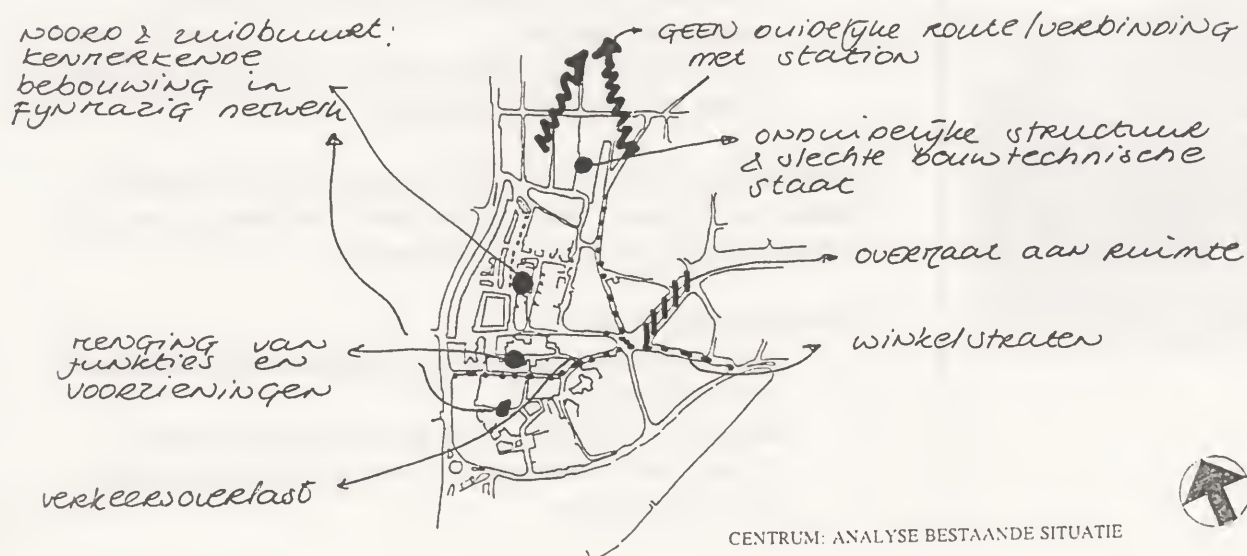 NOORD & zuidbuurt:
KENMERKENDE
bebouwing in
FIJNMAZIG netwerk
GEEN duidelijke route/verbinding
met station
onduidelijke structuur
& slechte bouwtechnische
staat
overmaat aan ruimte
menging van
funkties en
voorzieningen
winkelstraten
verkeersoverlast
CENTRUM: ANALYSE BESTAANDE SITUATIE